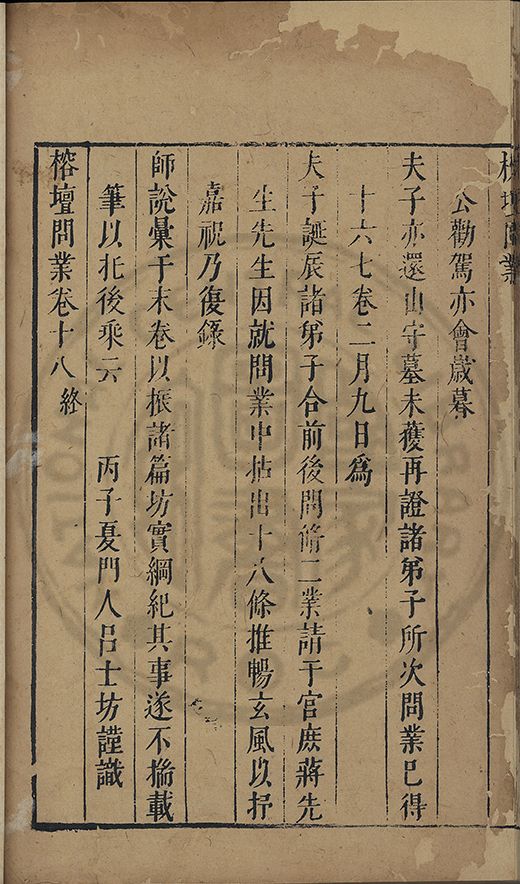 榕壇問業
公勸駕亦會歲暮
夫子亦還山守墓未獲再證諸弟子所次問業已得
十六七卷二月九日爲
夫子誕辰諸弟子合前後問脩二業請于官庶蔣先
生先生因就問業中拈出十八條推暢玄風以抒
嘉祝乃復錄
師說彙于末卷以振諸篇坊實綱紀其事遂不揣載
筆以玭後乘云　　丙子夏門人呂士坊謹識
榕壇問業卷十八 終